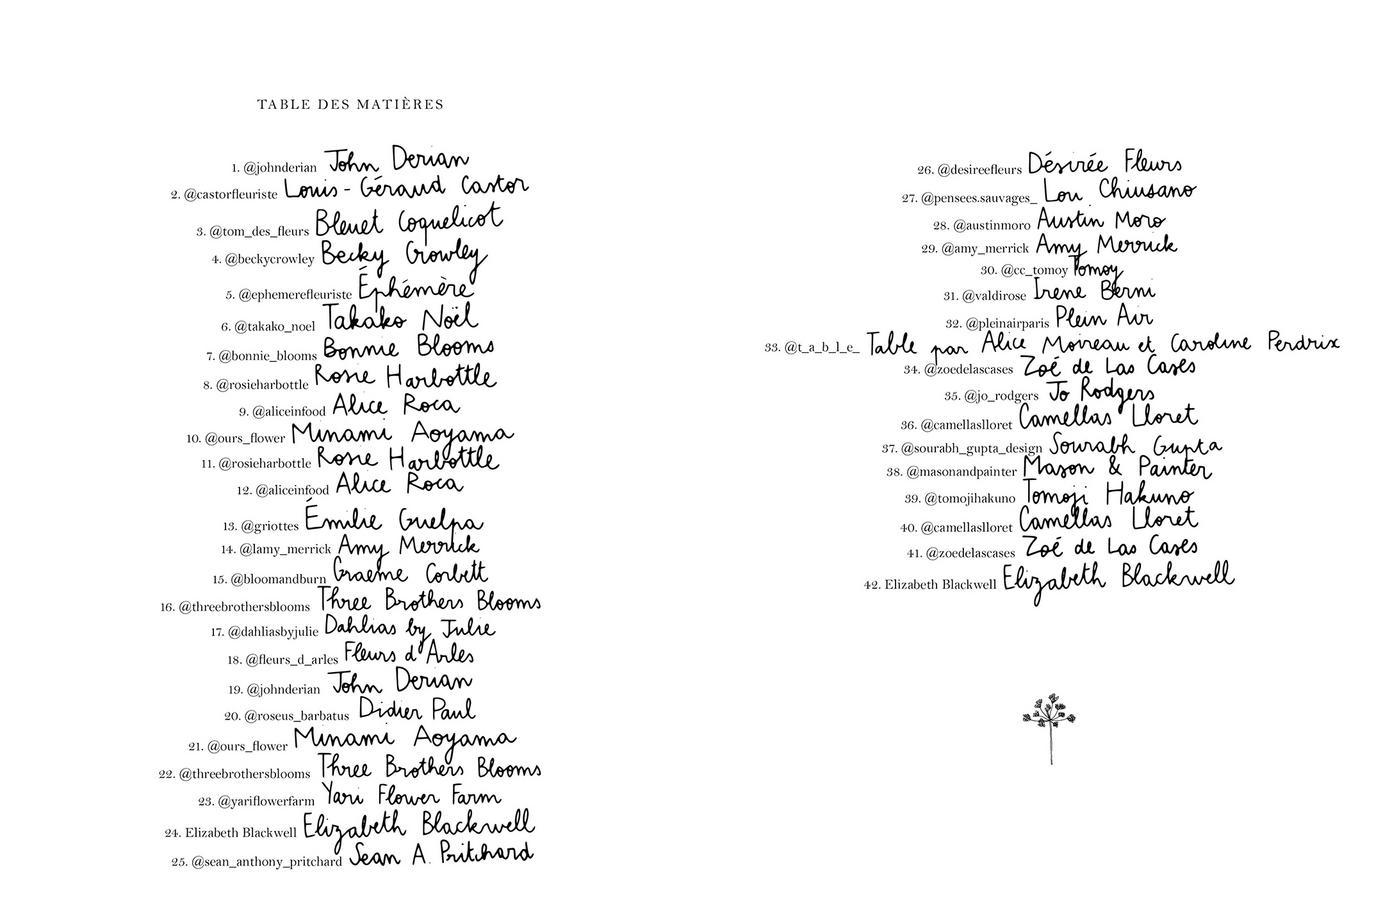 TABLE DES MATIÈRES
1. @johnderian John Derian
2. @castorfleuriste Louis-Géraud Castor
3. @tom_des_fleurs Bleuet Coquelicot
4. @beckycrowley Becky Crowley
5. @ephemerefleuriste Éphémère
6. @takako_noel Takako Noël
7. @bonnie_blooms Bonnie Blooms
8. @rosieharbottle Rosie Harbottle
9. @aliceinfood Alice Roca
10. @ours_flower Minami Aoyama
11. @rosieharbottle Rosie Harbottle
12. @aliceinfood Alice Roca
13. @griottes Émilie Guelpa
14. @lamy_merrick Amy Merrick
15. @bloomandburn Graeme Corbett
16. @threebrothersblooms Three Brothers Blooms
17. @dahliasbyjulie Dahlias by Julie
18. @fleurs_d_arles Fleurs d'Arles
19. @johnderian John Derian
20. @roseus_barbatus Didier Paul
21. @ours_flower Minami Aoyama
22. @threebrothersblooms Three Brothers Blooms
23. @yariflowerfarm Yari Flower Farm
24. Elizabeth Blackwell Elizabeth Blackwell
25. @sean_anthony_pritchard Sean A. Pritchard
26. @desireefleurs Désirée Fleurs
27. @pensees.sauvages_ Lou Chiusano
28. @austinmoro Austin Moro
29. @amy_merrick Amy Merrick
30. @cc_tomoy Tomoy
31. @valdirose Irene Berni
32. @pleinairparis Plein Air
33. @t_a_b_l_e_ Table par Alice Moireau et Caroline Perdrix
34. @zoedelascases Zoé de Las Cases
35. @jo_rodgers Jo Rodgers
36. @camellaslloret Camellas Lloret
37. @sourabh_gupta_design Sourabh Gupta
38. @masonandpainter Mason & Painter
39. @tomojihakuno Tomoji Hakuno
40. @camellaslloret Camellas Lloret
41. @zoedelascases Zoé de Las Cases
42. Elizabeth Blackwell Elizabeth Blackwell